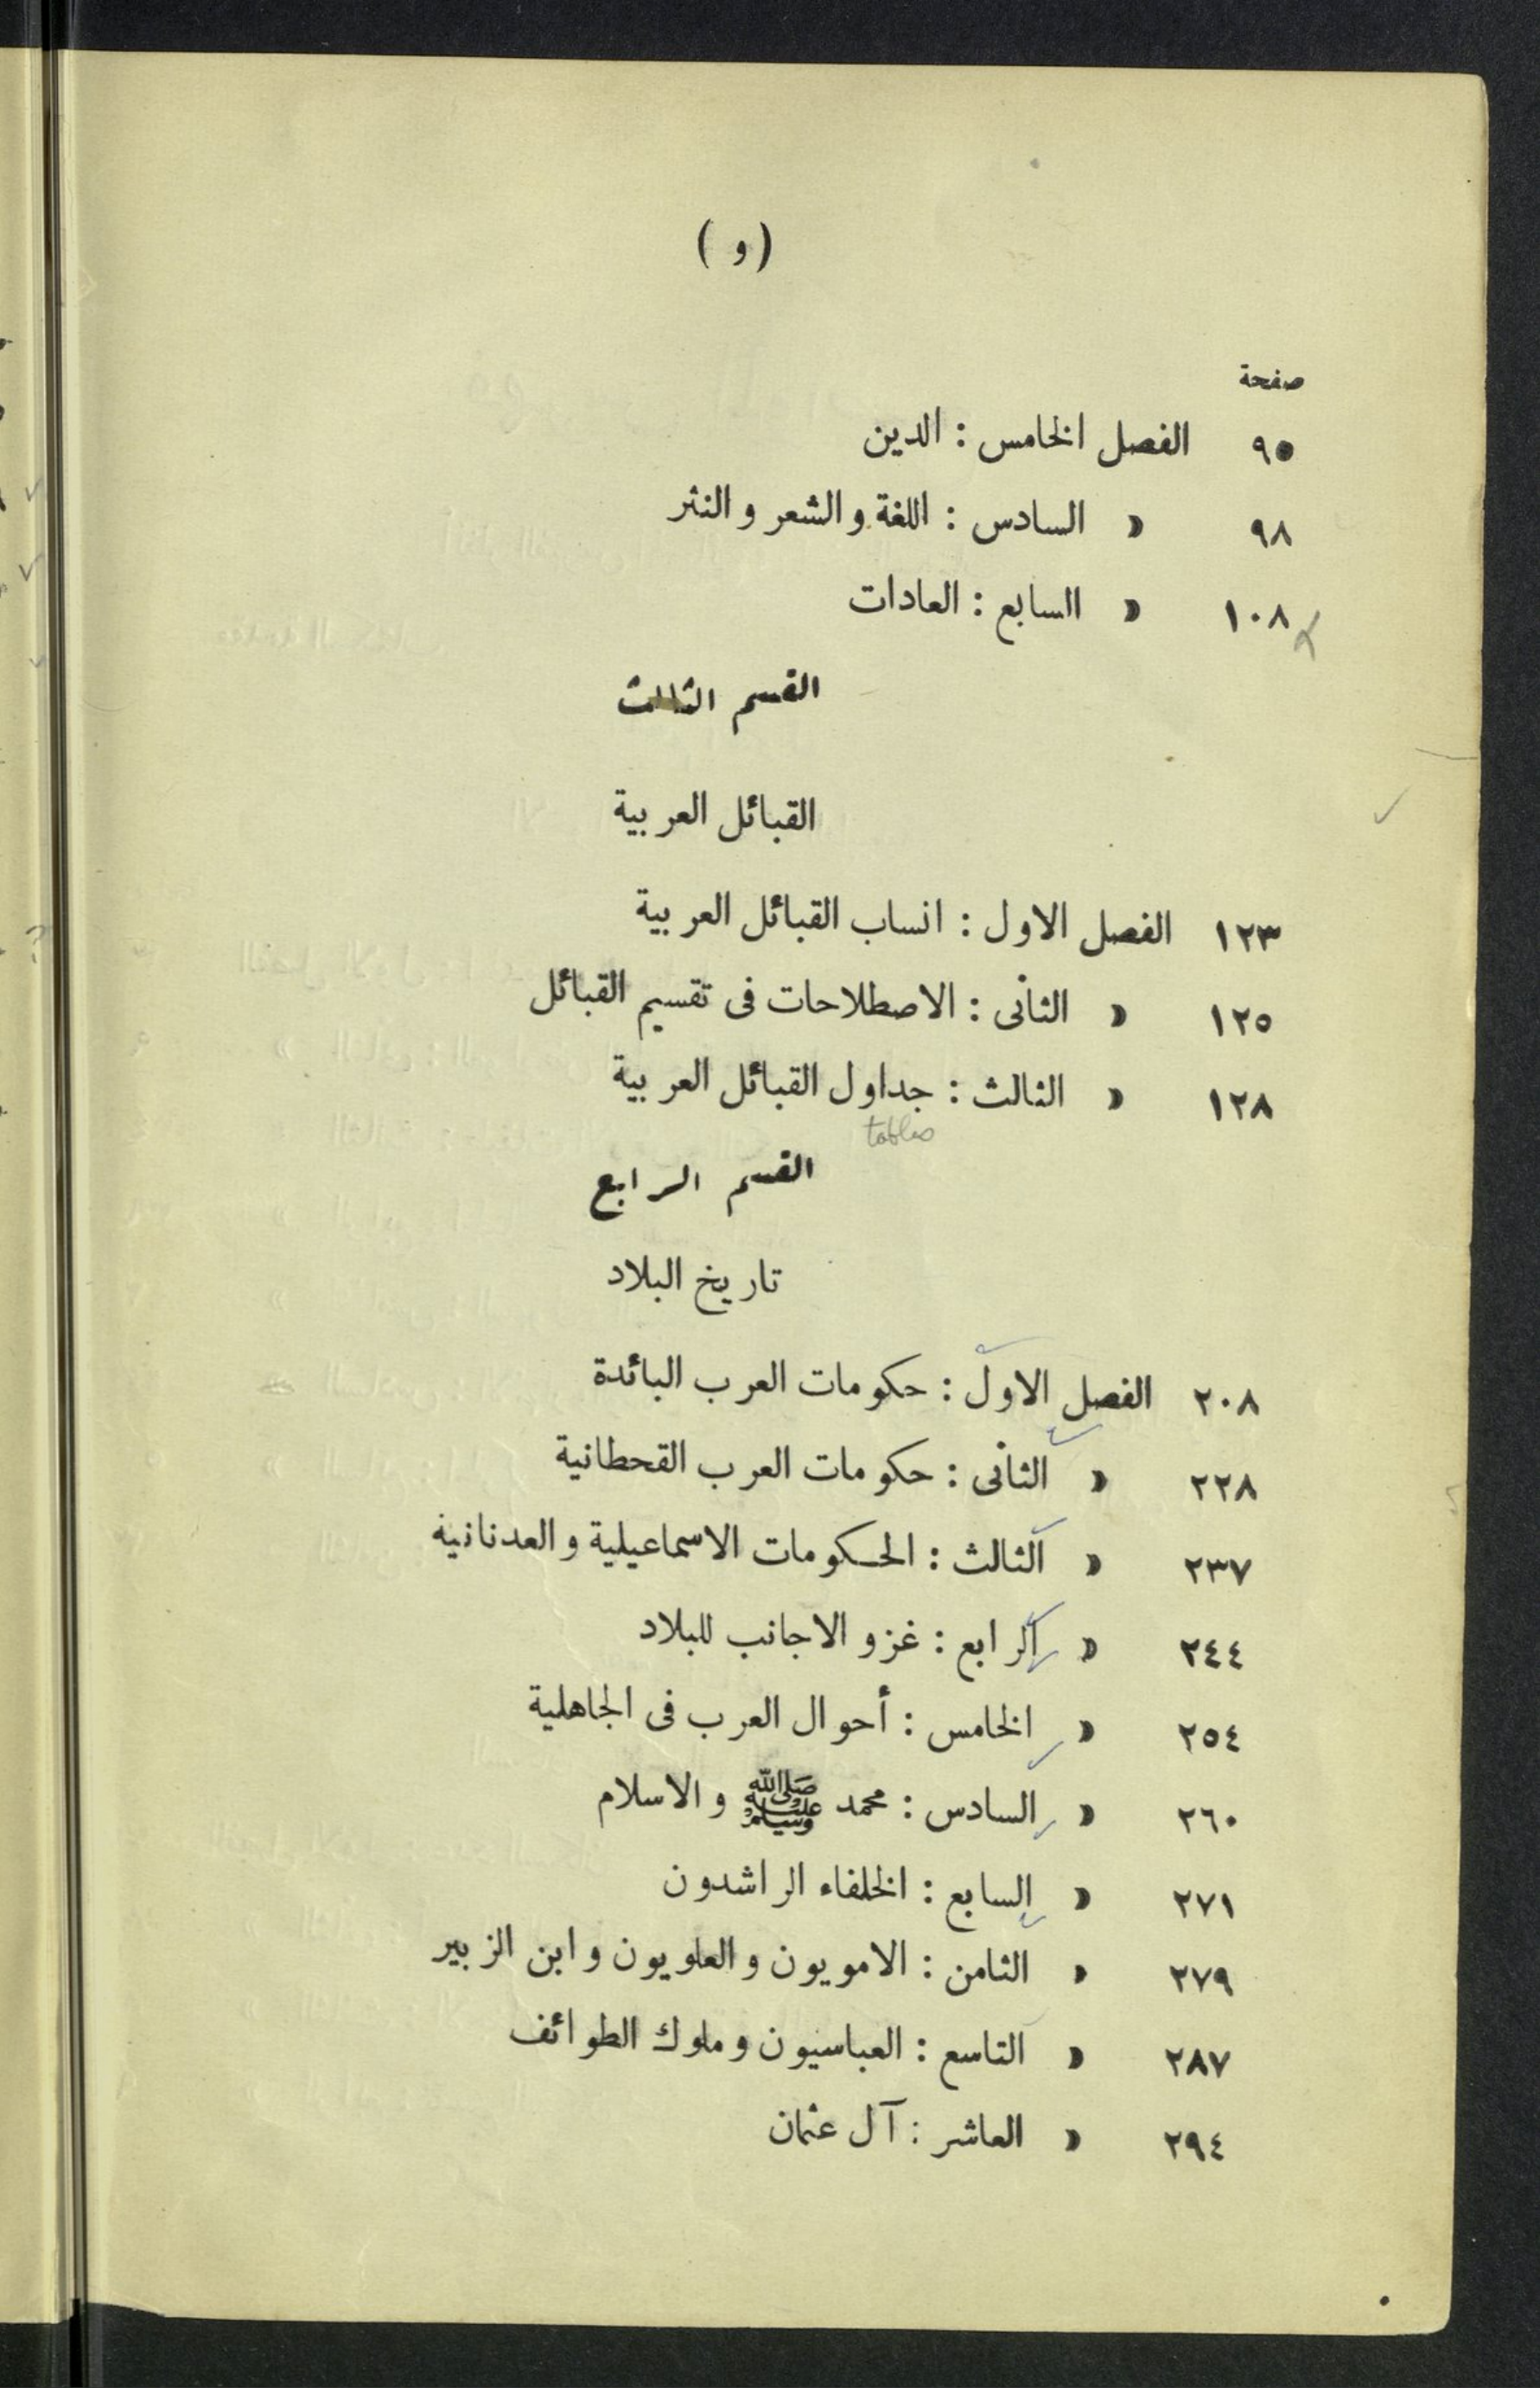 ( و )
صفحة
٩٥ الفصل الخامس : الدين
٩٨ » السادس : اللغة والشعر والنثر
١٠٨ » السابع : العادات
القسم الثالث
القبائل العربية
١٢٣ الفصل الاول : انساب القبائل العربية
١٢٥ » الثانى : الاصطلاحات فى تقسيم القبائل
١٢٨ » الثالث : جداول القبائل العربية
tables
القسم الرابع
تاريخ البلاد
٢٠٨ الفصل الاول : حكومات العرب البائدة
٢٢٨ » الثانى : حكومات العرب القحطانية
٢٣٧ » الثالث : الحكومات الاسماعيلية والعدنانية
٢٤٤ » الرابع : غزو الاجانب للبلاد
٢٥٤ » الخامس : أحوال العرب فى الجاهلية
٢٦٠ » السادس : محمد ﷺ والاسلام
٢٧١ » السابع : الخلفاء الراشدون
٢٧٩ » الثامن : الامويون والعلويون وابن الزبير
٢٨٧ » التاسع : العباسيون وملوك الطوائف
٢٩٤ » العاشر : آل عثمان